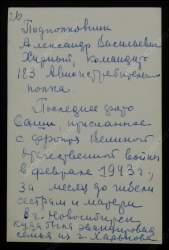 26
Подполковник
Александр Васильевич
Хирный, командир
183 Авиаистребительного
полка.
Последнее фото
Саши, присланное
с фронта Великой
отечественной войны
в феврале 1943 г.,
за месяц до гибели
сестрам и матери
в г. Новосибирск
куда была эвакуирована
семья из г. Харькова